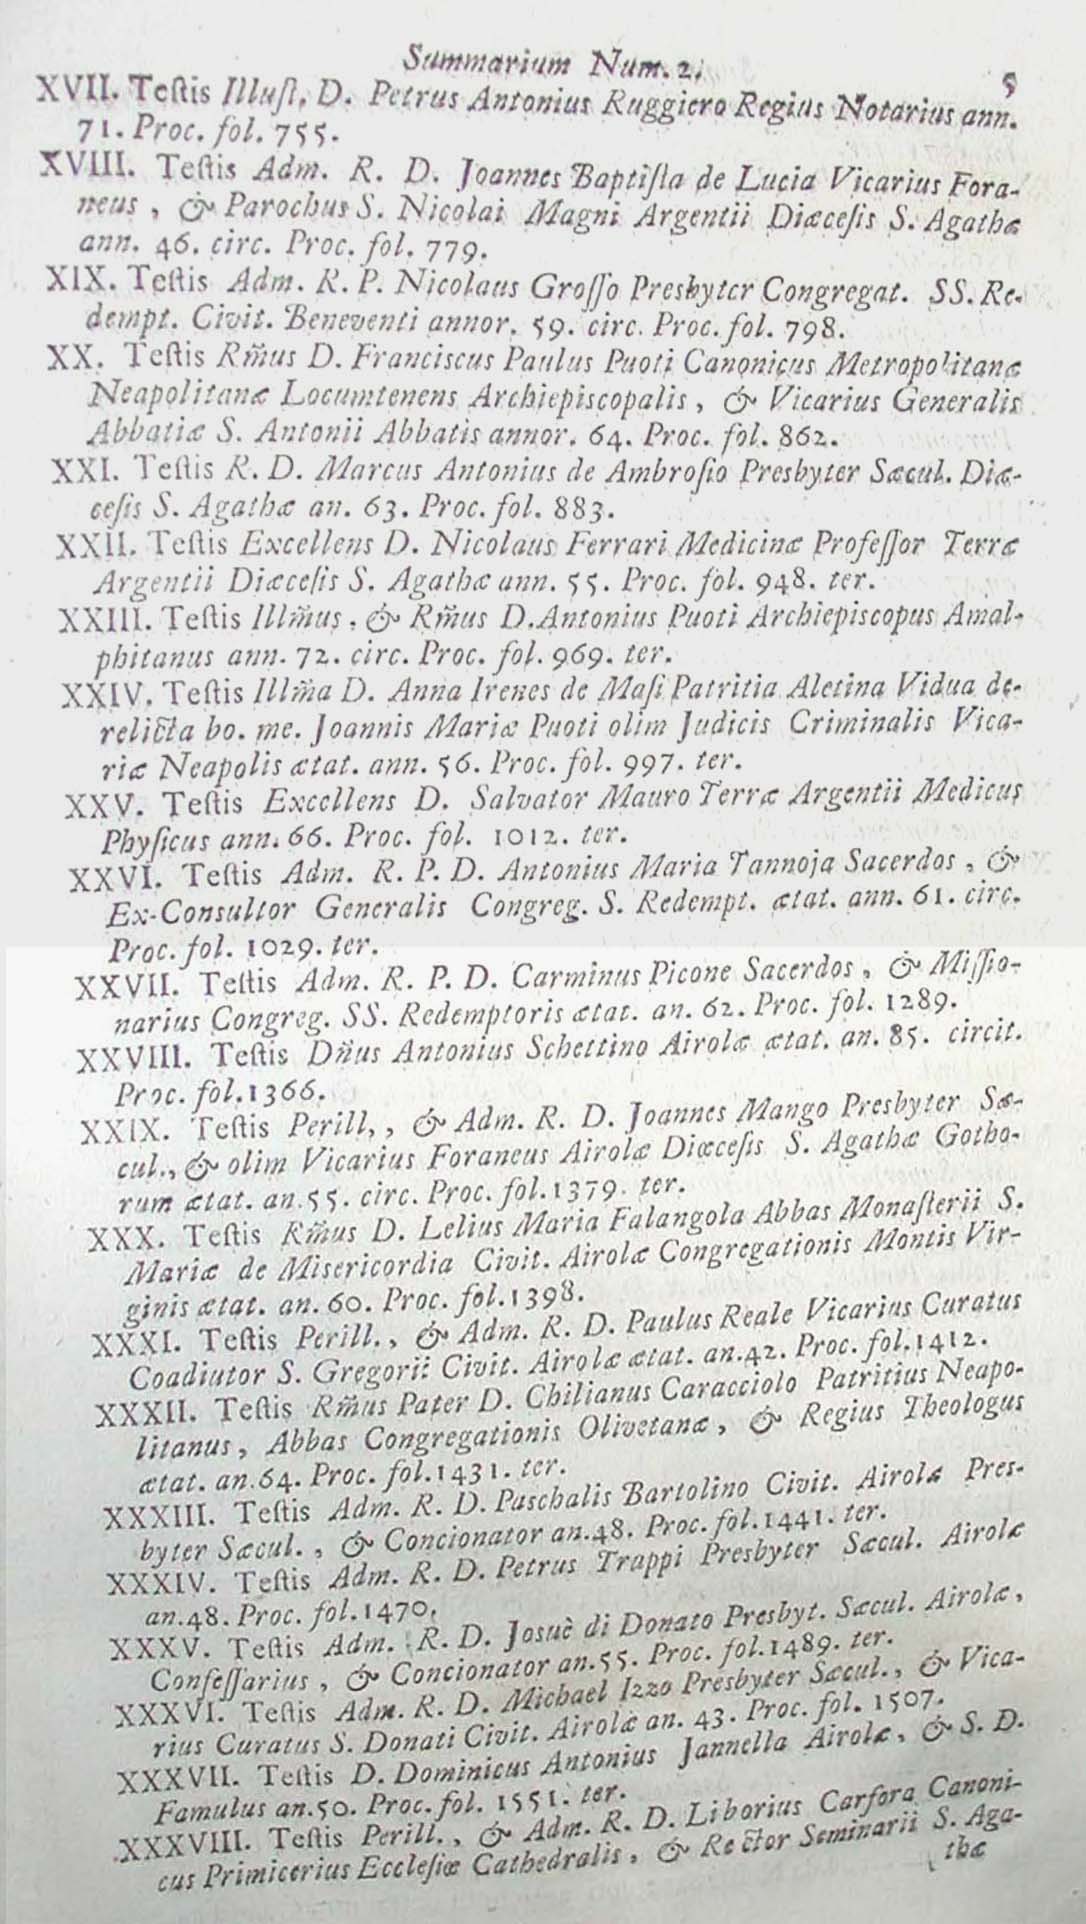 Summarium Num. 2. 5
XVII. Teſtis Illuſt. D. Petrus Antonius Ruggiero Regius Notarius ann.
71. Proc. fol. 755.
XVIII. Teſtis Adm. R. D. Joannes Baptiſta de Lucia Vicarius Fora-
neus, & Parochus S. Nicolai Magni Argentii Diæceſis S. Agathæ
ann. 46. circ. Proc. fol. 779.
XIX. Teſtis Adm. R. P. Nicolaus Groſſo Presbyter Congregat. SS. Re-
dempt. Civit. Beneventi annor. 59. circ. Proc. fol. 798.
XX. Teſtis Rm̃us D. Franciscus Paulus Puoti Canonicus Metropolitanæ
Neapolitanæ Locumtenens Archiepiscopalis, & Vicarius Generalis
Abbatiæ S. Antonii Abbatis annor. 64. Proc. fol. 862.
XXI. Teſtis R. D. Marcus Antonius de Ambroſio Presbyter Sæcul. Diæ-
ceſis S. Agathæ an. 63. Proc. fol. 883.
XXII. Teſtis Excellens D. Nicolaus Ferrari Medicinæ Profeſſor Terræ
Argentii Diæceſis S. Agathæ ann. 55. Proc. fol. 948. ter.
XXIII. Teſtis Illm̃us, & Rm̃us D. Antonius Puoti Archiepiscopus Amal-
phitanus ann. 72. circ. Proc. fol. 969. ter.
XXIV. Teſtis Illm̃a D. Anna Irenes de Maſi Patritia Aletina Vidua de-
relicta bo. me. Joannis Mariæ Puoti olim Judicis Criminalis Vica-
riæ Neapolis ætat. ann. 56. Proc. fol. 997. ter.
XXV. Teſtis Excellens D. Salvator Mauro Terræ Argentii Medicus
Phyſicus ann. 66. Proc. fol. 1012. ter.
XXVI. Teſtis Adm. R. P. D. Antonius Maria Tannoja Sacerdos, &
Ex-Consultor Generalis Congreg. S. Redempt. ætat. ann. 61. circ.
Proc. fol. 1029. ter.
XXVII. Teſtis Adm. R. P. D. Carminus Picone Sacerdos, & Miſſio-
narius Congreg. SS. Redemptoris ætat. an. 62. Proc. fol. 1289.
XXVIII. Teſtis Dñus Antonius Schettino Airolæ ætat. an. 85. circit.
Proc. fol. 1366.
XXIX. Teſtis Perill., & Adm. R. D. Joannes Mango Presbyter Sæ-
cul., & olim Vicarius Foraneus Airolæ Diœceſis S. Agathæ Gotho-
rum ætat. an. 55. circ. Proc. fol. 1379. ter.
XXX. Teſtis Rm̃us D. Lelius Maria Falangola Abbas Monaſterii S.
Mariæ de Misericordia Civit. Airolæ Congregationis Montis Vir-
ginis ætat. an. 60. Proc. fol. 1398.
XXXI. Teſtis Perill., & Adm. R. D. Paulus Reale Vicarius Curatus
Coadiutor S. Gregorii Civit. Airolæ ætat. an. 42. Proc. fol. 1412.
XXXII. Teſtis Rm̃us Pater D. Chilianus Caracciolo Patritius Neapo-
litanus, Abbas Congregationis Olivetanæ, & Regius Theologus
ætat. an. 64. Proc. fol. 1431. ter.
XXXIII. Teſtis Adm. R. D. Paschalis Bartolino Civit. Airolæ Pres-
byter Sæcul., & Concionator an. 48. Proc. fol. 1441. ter.
XXXIV. Teſtis Adm. R. D. Petrus Trappi Presbyter Sæcul. Airolæ
an. 48. Proc. fol. 1470.
XXXV. Teſtis Adm. R. D. Josuè di Donato Presbyt. Sæcul. Airolæ,
Confeſſarius, & Concionator an. 55. Proc. fol. 1489. ter.
XXXVI. Teſtis Adm. R. D. Michael Izzo Presbyter Sæcul., & Vica-
rius Curatus S. Donati Civit. Airolæ an. 43. Proc. fol. 1507.
XXXVII. Teſtis D. Dominicus Antonius Jannella Airolæ, & S. D.
Famulus an. 50. Proc. fol. 1551. ter.
XXXVIII. Teſtis Perill., & Adm. R. D. Liborius Carfora Canoni-
cus Primicerius Eccleſiæ Cathedralis, & Rector Seminarii S. Aga-
thæ